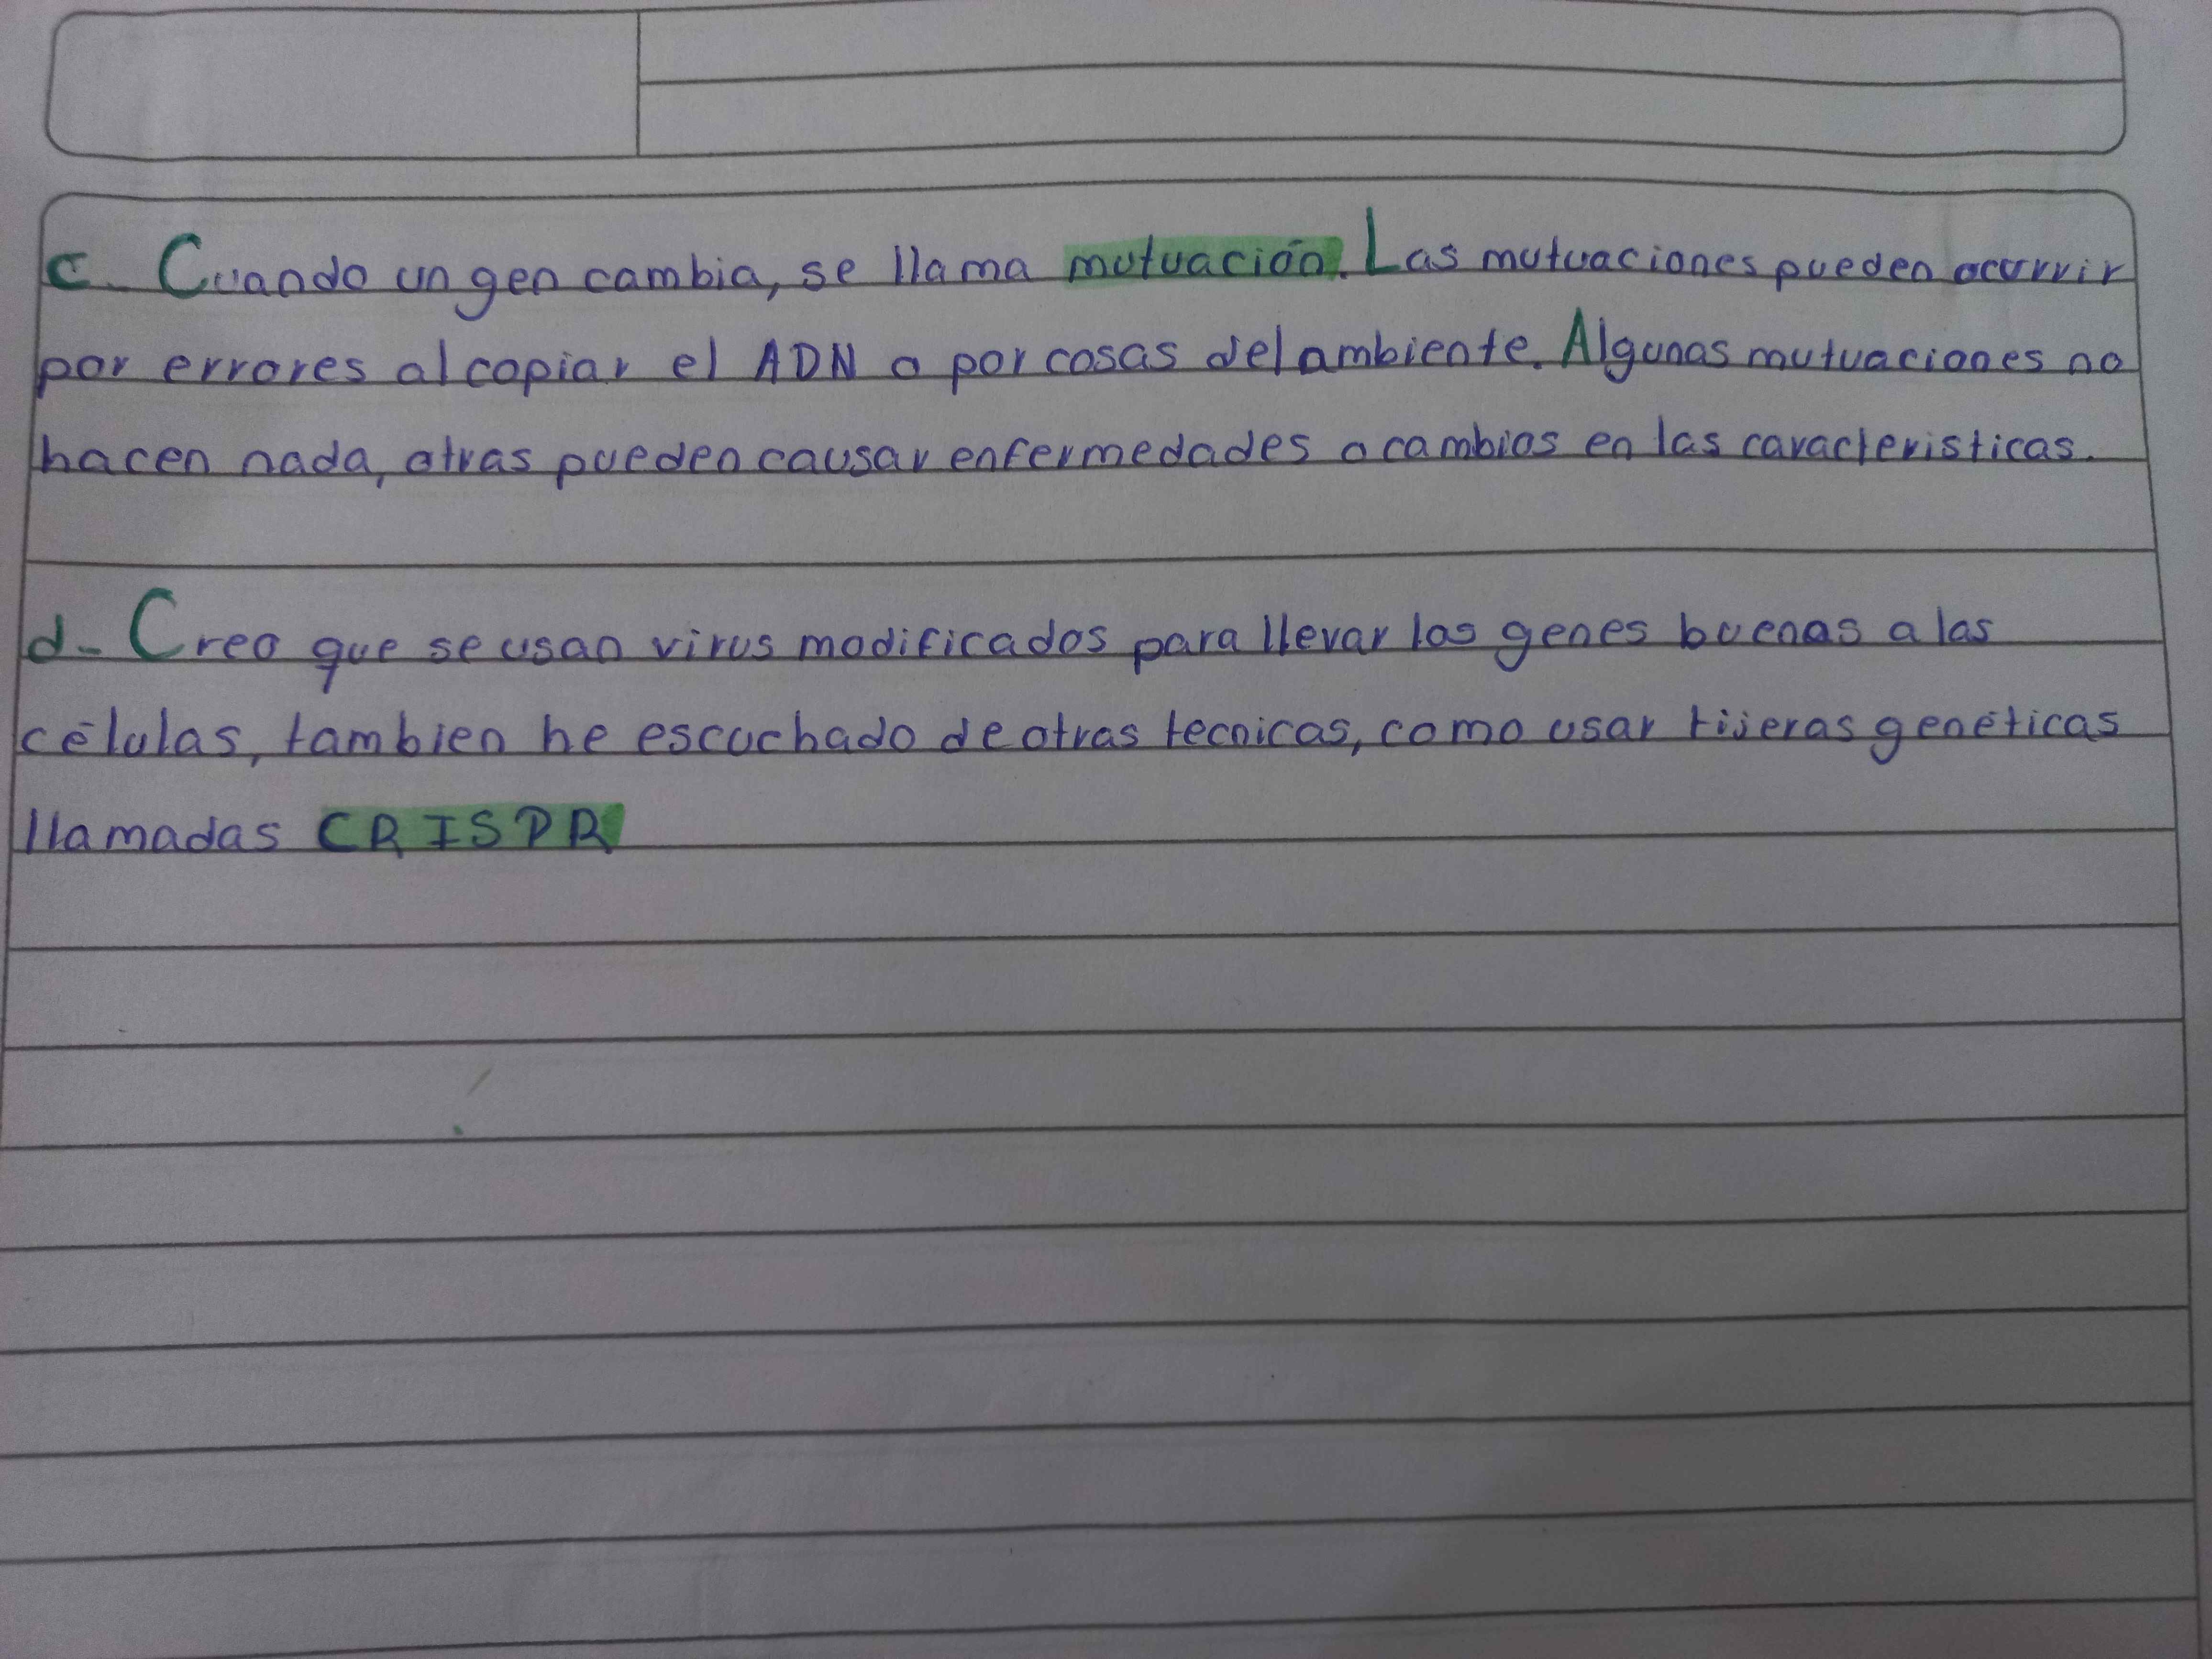 c. Cuando un gen cambia, se llama mutuación. Las mutuaciones pueden ocurrir
por errores al copiar el ADN o por cosas del ambiente. Algunas mutuaciones no
hacen nada, otras pueden causar enfermedades o cambios en las caracteristicas.
d- Creo que se usan virus modificados para llevar los genes buenos a las
células, tambien he escuchado de otras tecnicas, como usar tijeras genéticas
llamadas CRISPR